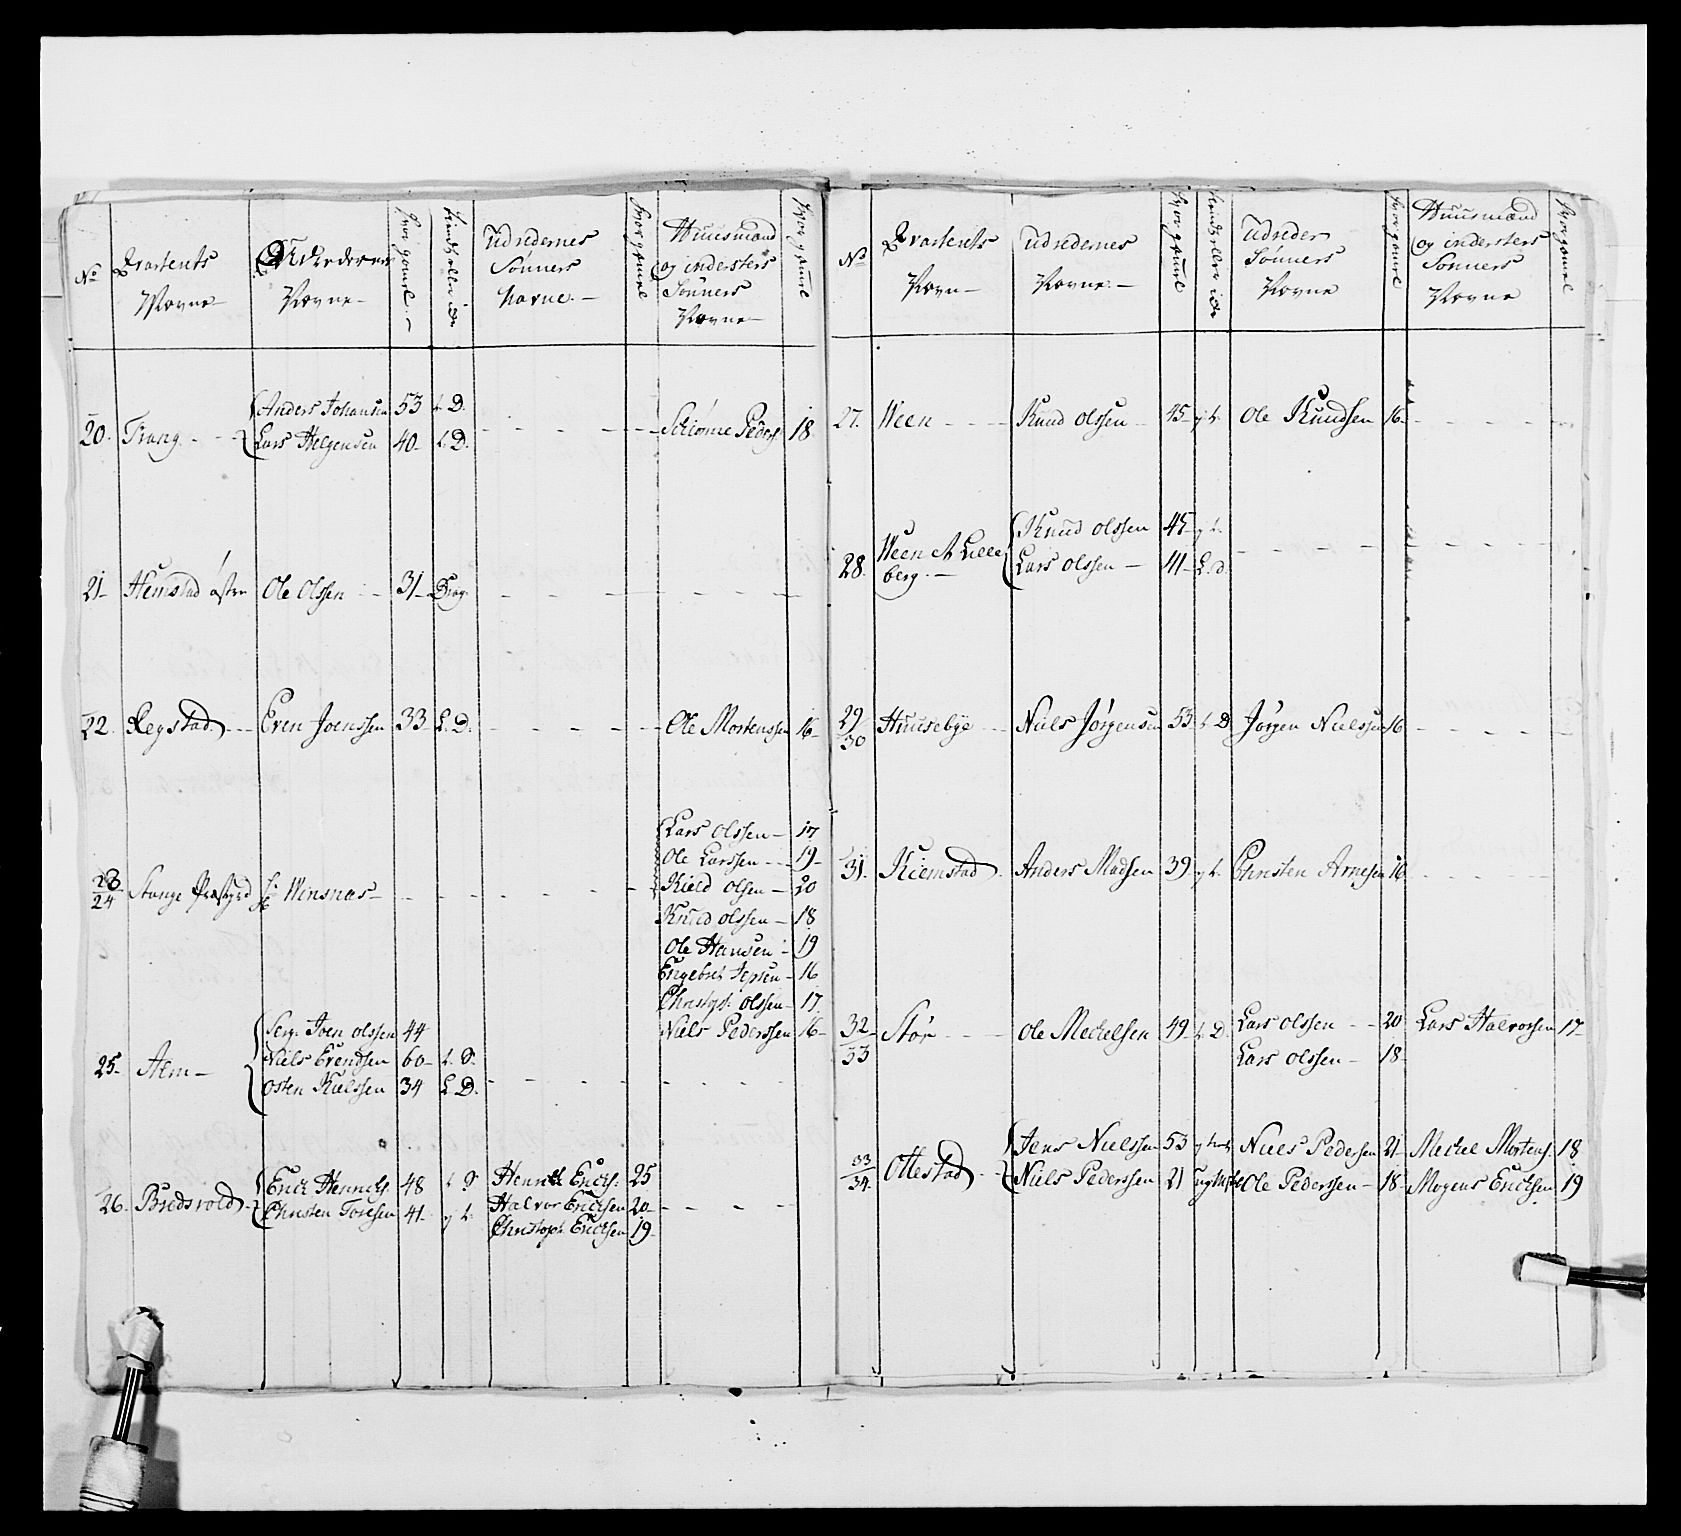 No
Qvarteerets
Navne
Udredernes
Navne
hvor gamel
Udredernes
Sønners
Navne
hvor gamel
Huusmænd
og indersters
Sønners
Navne
hvor gamel
20. Trang Anders Johansen 53 L. D.
Lars Helgensen 40 L. D. Schiønne Peders. 18
21 Hemstad østre Ole Olssen 31 Drag.
22. Regstad Even Joenssen 33 L. D. Ole Mortenssen 16
23
24 Stange Præstgrd Winsnæs
Lars Olssen 17
Ole Larssen 19
Kield Olsen 20
Knud Olssen 18
Ole Hansen 19
Engebret Jepsen 16
Christoph. Olssen 17
Niels Pederssen 16
25 Alm Serg. Joen Olssen 44
Niels Evendsen 60 L. S.
Osten Kielssen 34 L. D.
26. Bredsvold Erick Henricks. 48 L. S. Henrick Ericks. 25
Christen Toresen 41 g. L. Halvor Ericksen 20
Christoph Ericksen 19
No
Qvarteerets
Navn
Udredernes
Navne
hvor gamel
Udreder
Sønners
Navne
hvor gamel
Huusmænd
og indersters
Sønners
Navne
hvor gamel
27. Ween Knud Olssen 45 g. L. Ole Knudsen 16
28. Ween & Lille
berg Knud Olssen 45 g. L.
Lars Olssen 41 L. d.
29
30 Huusebye Niels Jørgensen 53 L. D. Jørgen Nielssen 16
31. Kiemstad Anders Madsen 39 g. L. Christen Arnesen 16
32
33 Stør Ole Mechelsen 49 L. D. Lars Olssen 20 Lars Halvorsen 17
Lars Olssen 18
33
34 Ottestad Jens Nielssen 53 Niels Pedersen 21 Mechel Mortens. 18
Niels Pederssen 21 Ole Pederssen 18 Mogens Ericksen 19